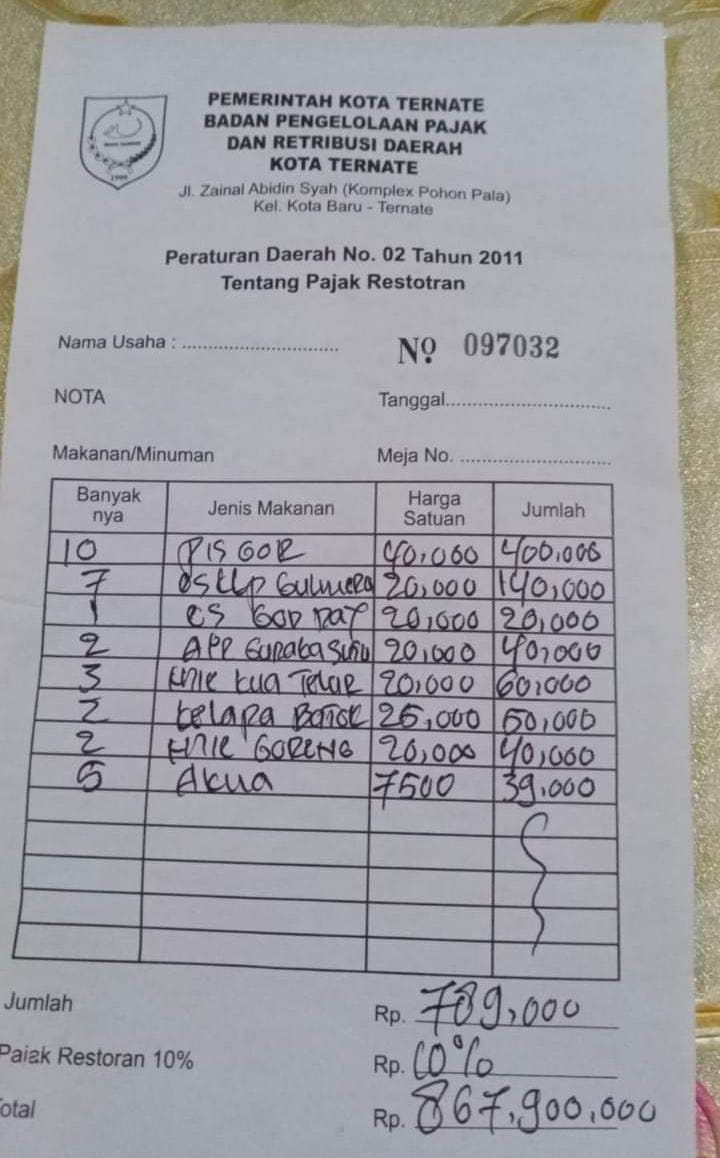 PEMERINTAH KOTA TERNATE
BADAN PENGELOLAAN PAJAK
DAN RETRIBUSI DAERAH
KOTA TERNATE
Jl. Zainal Abidin Syah (Komplex Pohon Pala)
Kel. Kota Baru - Ternate
Peraturan Daerah No. 02 Tahun 2011
Tentang Pajak Restotran
Nama Usaha : Nº 097032
NOTA Tanggal
Makanan/Minuman Meja No.
Banyak nya Jenis Makanan Harga Satuan Jumlah
10 PIS GOR 40,000 400,000
7 20,000 140,000
1 ES 20,000 20,000
2 20,000 40,000
3 kua Telur 20,000 60,000
2 kelapa 25,000 50,000
2 GORENG 20,000 40,000
5 Akua 7500 39.000
Jumlah Rp. 789,000
Pajak Restoran 10% Rp. 10%
Total Rp. 867,900,000